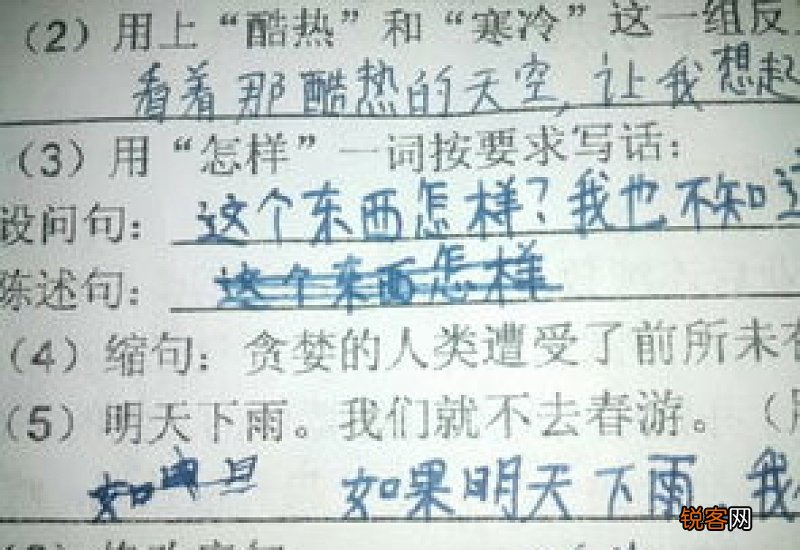 （2）用上“酷热”和“寒冷”这一组反
看着那酷热的天空，让我想起
（3）用“怎样”一词按要求写话：
设问句：这个东西怎样？我也不知道
陈述句：这个东西怎样
（4）缩句：贪婪的人类遭受了前所未有
（5）明天下雨。我们就不去春游。（
如 如果明天下雨，我
锐客网